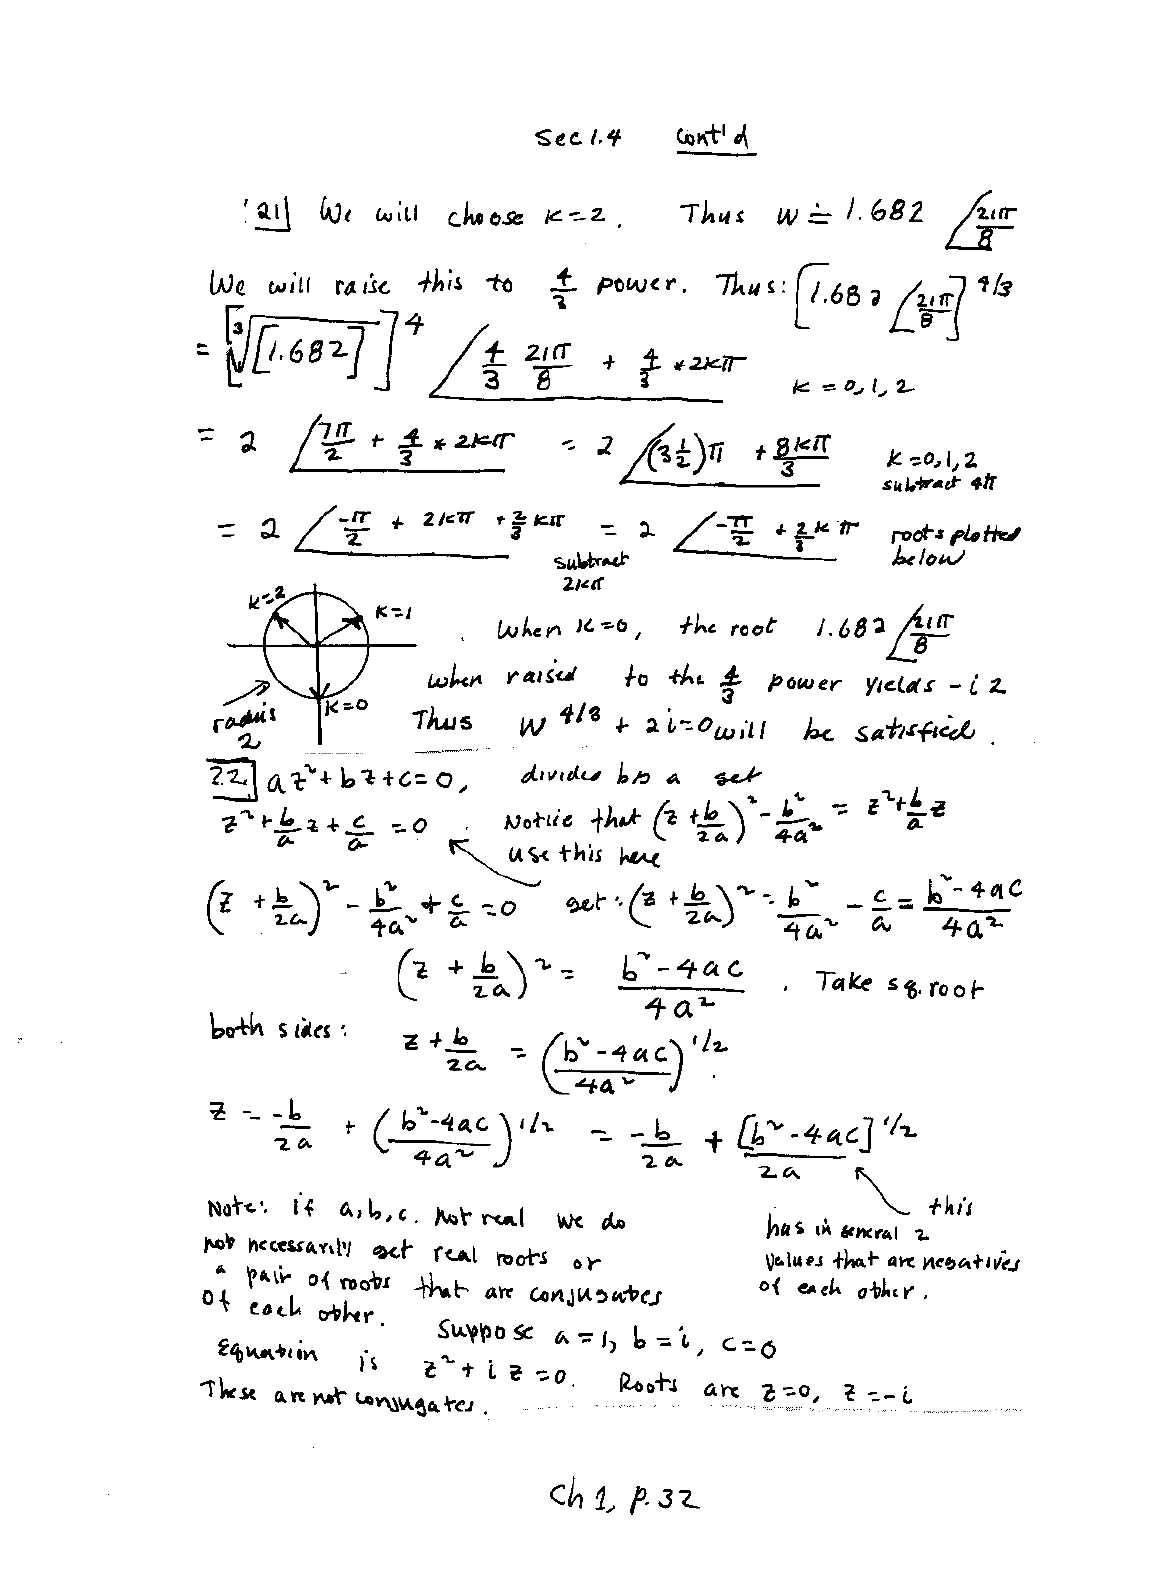 Sec 1.4 Cont'd
21] We will choose k=2. Thus w ≐ 1.682 ∠21π/8
We will raise this to 4/3 power. Thus: [1.682 ∠21π/8]^4/3
= [∛[1.682]]^4 ∠4/3 21π/8 + 4/3 * 2kπ k = 0,1,2
= 2 ∠7π/2 + 4/3 * 2kπ = 2 ∠(3½)π + 8kπ/3 k=0,1,2
subtract 4π
= 2 ∠-π/2 + 2kπ + 2/3 kπ = 2 ∠-π/2 + 2/3 kπ roots plotted
below
subtract
2kπ
k=2
k=1
k=0
radius
2
When k=0, the root 1.682 ∠21π/8
when raised to the 4/3 power yields -i2
Thus w^4/3 + 2i=0 will be satisfied.
22] az²+bz+c=0, divides by a get
z²+b/a z+c/a =0. Notice that (z+b/2a)² - b²/4a² = z²+b/a z
use this here
(z + b/2a)² - b²/4a² + c/a =0 get: (z + b/2a)² = b²/4a² - c/a = b²-4ac/4a²
(z + b/2a)² = b²-4ac/4a². Take sq. root
both sides: z + b/2a = (b²-4ac/4a²)^1/2.
z = -b/2a + (b²-4ac/4a²)^1/2 = -b/2a + [b²-4ac]^1/2/2a
this
has in general 2
values that are negatives
of each other.
Note: if a,b,c. not real we do
not necessarily get real roots or
a pair of roots that are conjugates
of each other. Suppose a=1, b=i, c=0
Equation is z²+iz=0. Roots are z=0, z=-i
These are not conjugates.
Ch 1, p.32